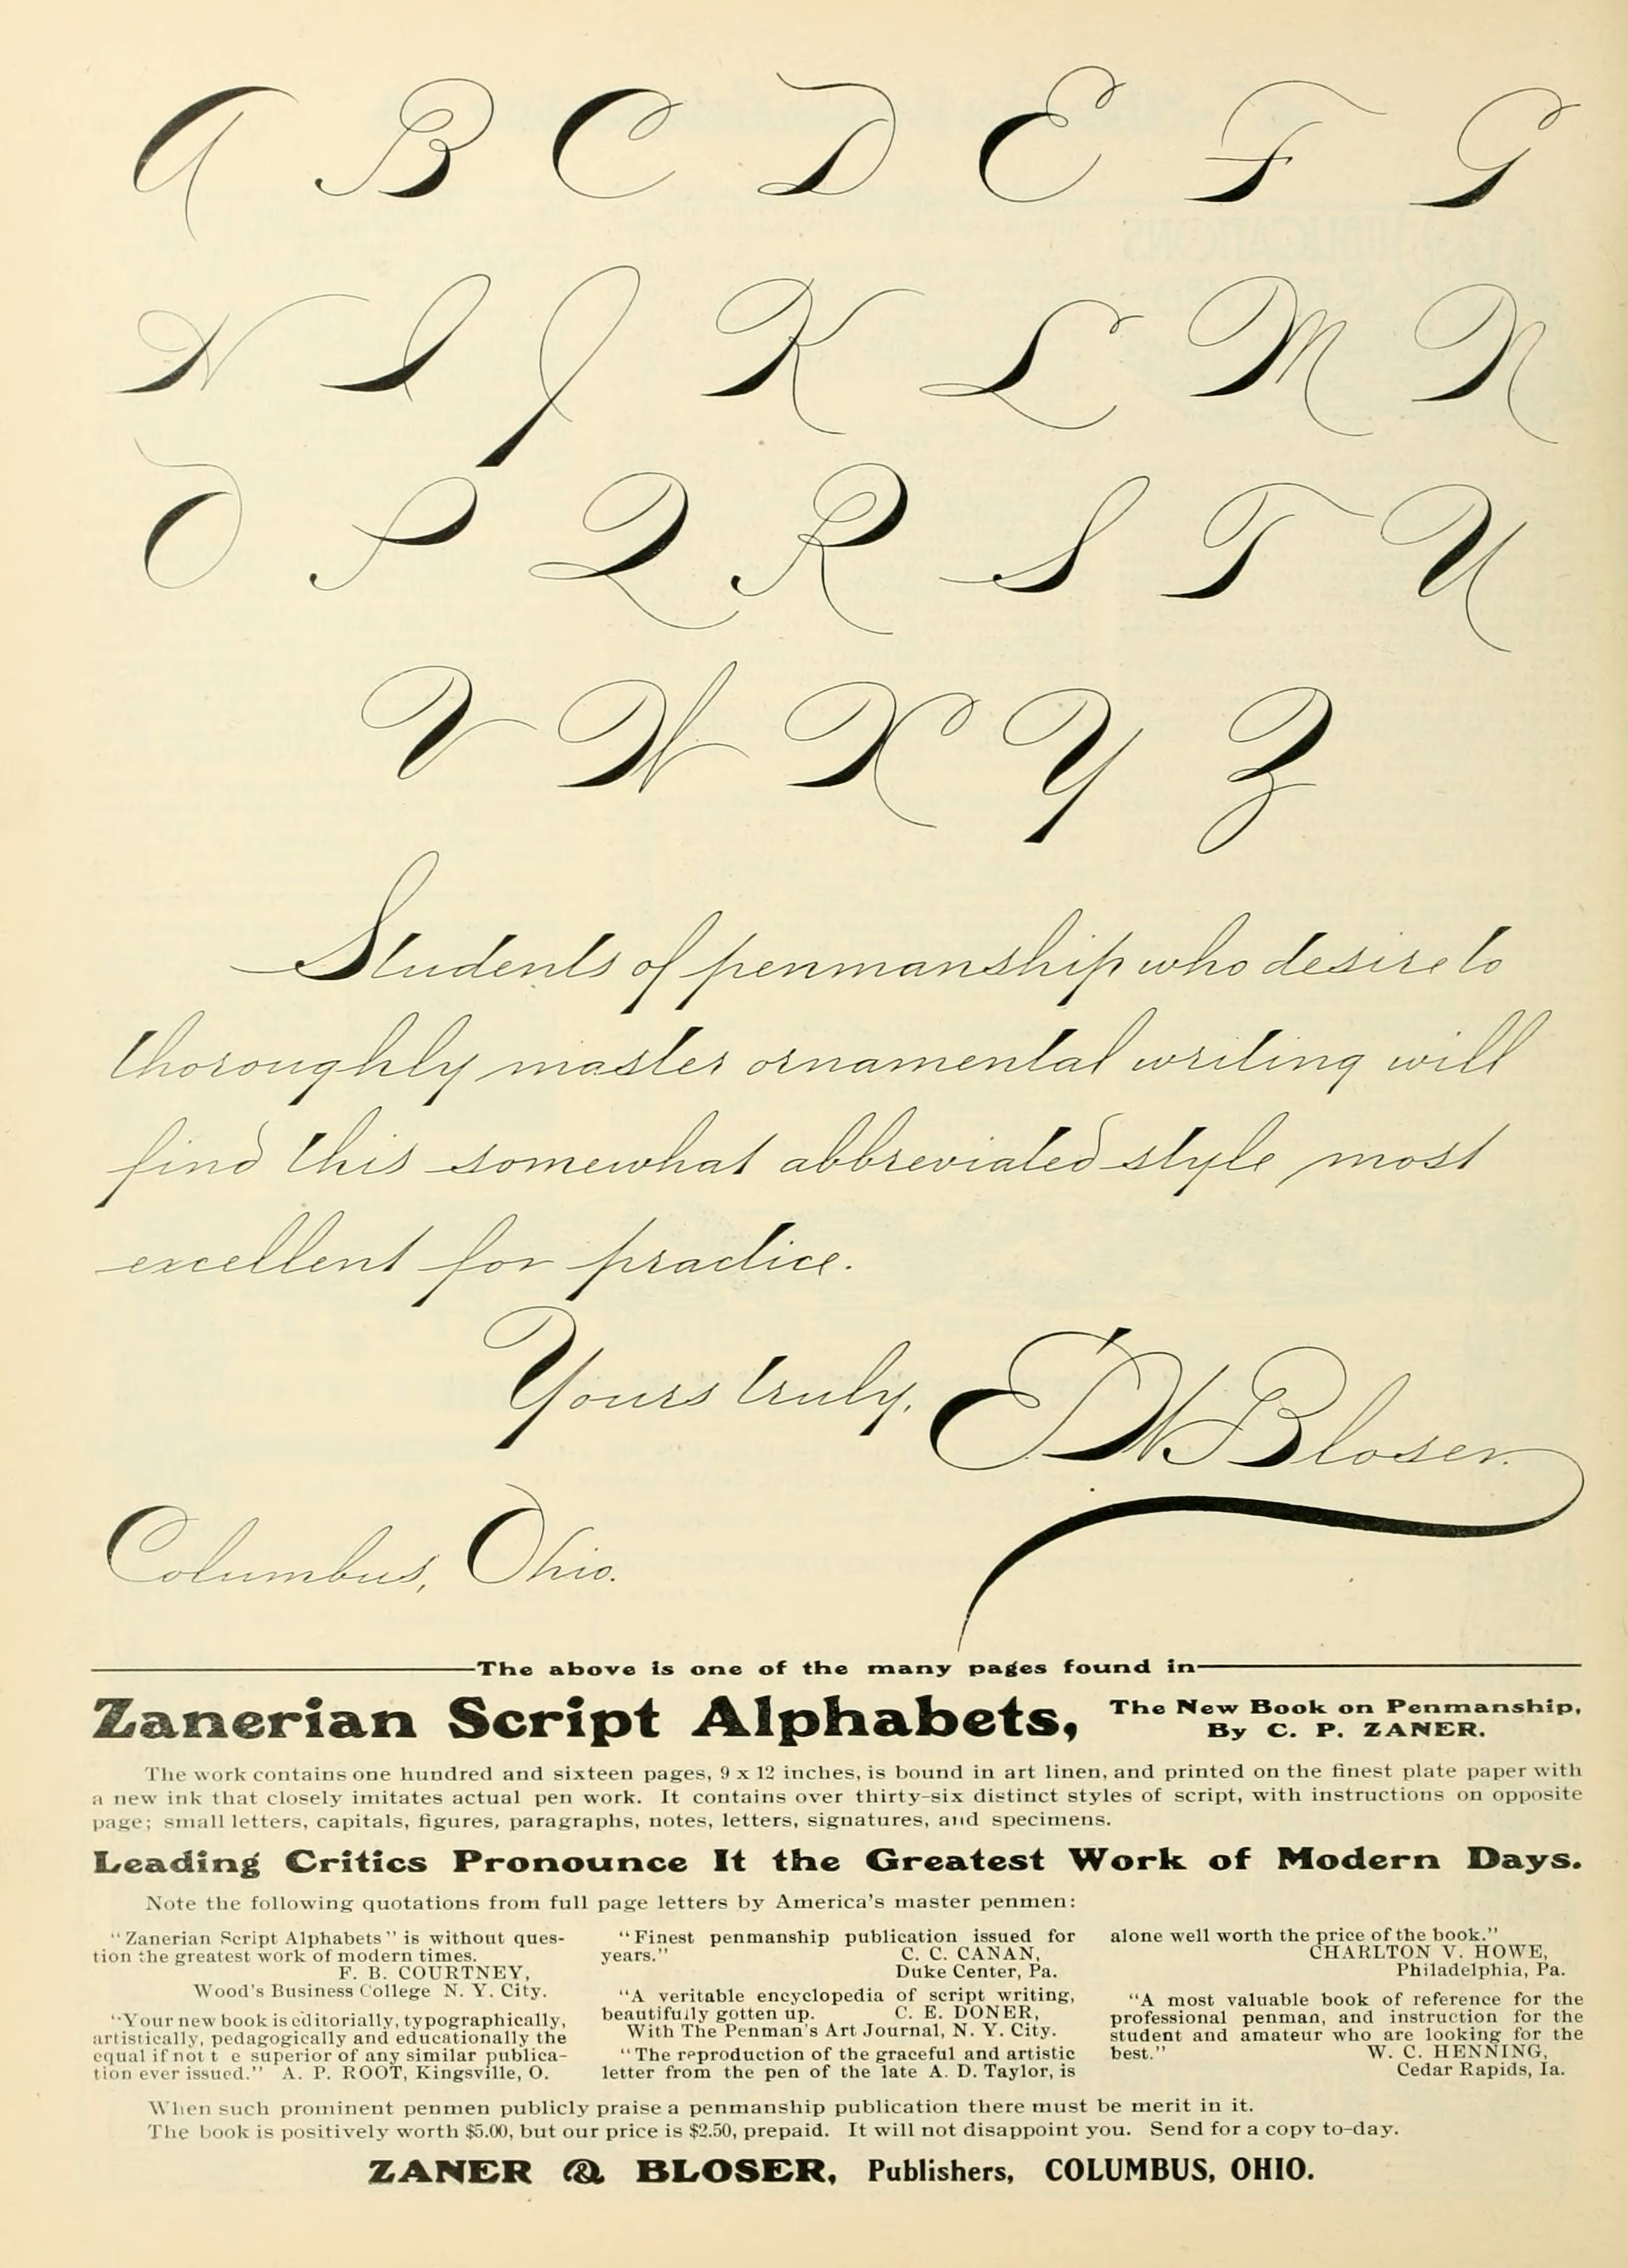 A B C D E F G
H I J K L M N
O P Q R S T U
V W X Y Z
Students of penmanship who desire to
thoroughly master ornamental writing will
find this somewhat abbreviated style most
excellent for practice.
Yours truly, E W Bloser.
Columbus, Ohio.
The above is one of the many pages found in
Zanerian Script Alphabets, The New Book on Penmanship,
By C. P. ZANER.
The work contains one hundred and sixteen pages, 9 x 12 inches, is bound in art linen, and printed on the finest plate paper with
a new ink that closely imitates actual pen work. It contains over thirty-six distinct styles of script, with instructions on opposite
page; small letters, capitals, figures, paragraphs, notes, letters, signatures, and specimens.
Leading Critics Pronounce It the Greatest Work of Modern Days.
Note the following quotations from full page letters by America's master penmen:
"Zanerian Script Alphabets" is without ques-
tion the greatest work of modern times.
F. B. COURTNEY,
Wood's Business College N. Y. City.
"Your new book is editorially, typographically,
artistically, pedagogically and educationally the
equal if not t e superior of any similar publica-
tion ever issued." A. P. ROOT, Kingsville, O.
"Finest penmanship publication issued for
years." C. C. CANAN,
Duke Center, Pa.
"A veritable encyclopedia of script writing,
beautifully gotten up. C. E. DONER,
With The Penman's Art Journal, N. Y. City.
"The reproduction of the graceful and artistic
letter from the pen of the late A. D. Taylor, is
alone well worth the price of the book."
CHARLTON V. HOWE,
Philadelphia, Pa.
"A most valuable book of reference for the
professional penman, and instruction for the
student and amateur who are looking for the
best." W. C. HENNING,
Cedar Rapids, Ia.
When such prominent penmen publicly praise a penmanship publication there must be merit in it.
The book is positively worth $5.00, but our price is $2.50, prepaid. It will not disappoint you. Send for a copy to-day.
ZANER & BLOSER, Publishers, COLUMBUS, OHIO.